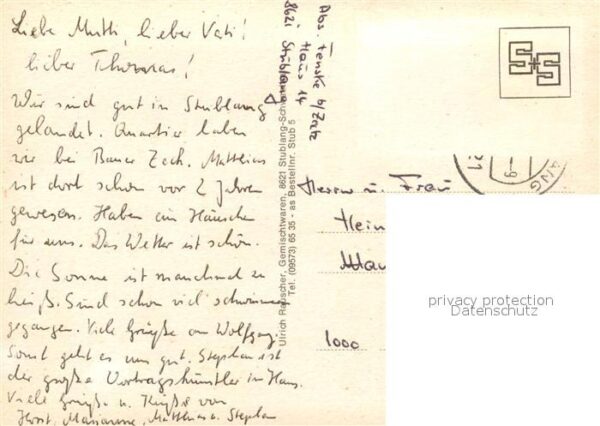 Liebe Mutti, lieber Vati!
lieber Thomas!
Wir sind gut in Stublang
gelandet. Quartier haben
wir bei Bauer Zech. Matthias
ist dort schon vor 2 Jahren
gewesen. Haben ein Häuschen
für uns. Das Wetter ist schön.
Die Sonne ist manchmal zu
heiß. Sind schon viel schwimmen
gegangen. Viele Grüße an Wolfgang.
Sonst geht es uns gut. Stephan ist
der große Vortragskünstler im Haus.
Viele Grüße u. Küsse von
Horst, Marianne, Matthias u. Stephan
Abs. Fenske b/
Haus 14
8621 Stublang
Ulrich Rauscher, Gemischtwaren, 8621 Stublang-
Tel. (09573) 65 35 - as Bestellnr. Stub 5
S+S
ANG
Herrn u. Frau
Hein
1000
privacy protection
Datenschutz